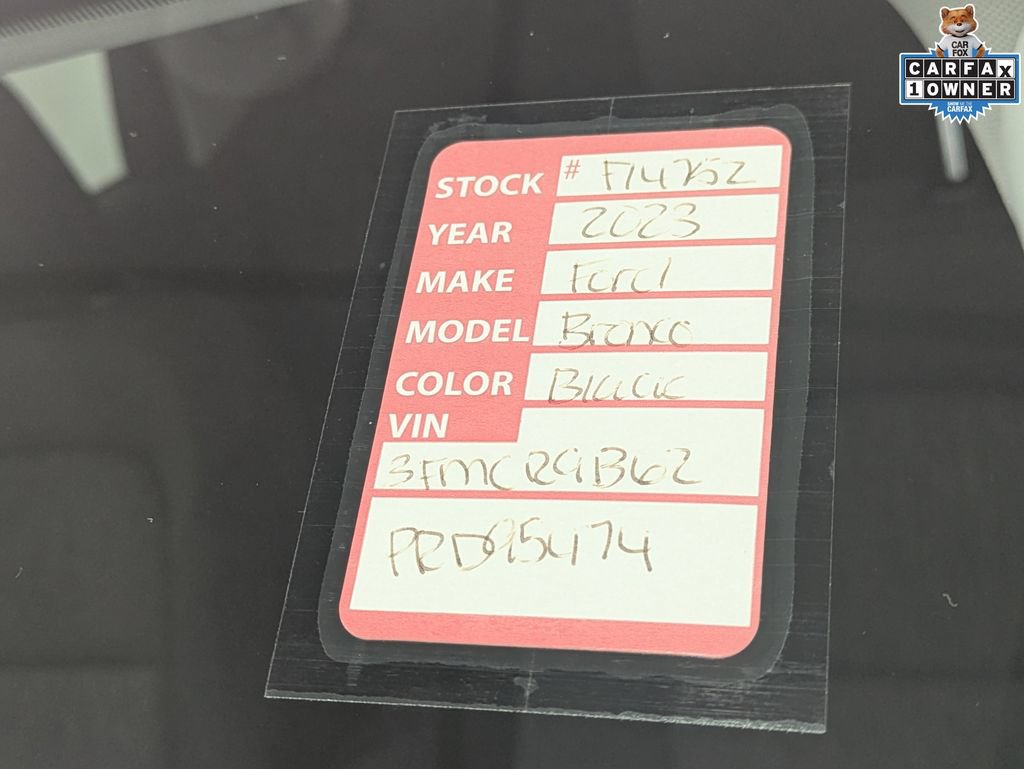 CAR
FOX
CARFAX
1 OWNER
SHOW ME THE
CARFAX
STOCK # F14752
YEAR 2023
MAKE Ford
MODEL Bronco
COLOR Black
VIN
3FMCR9B62
PRD95474